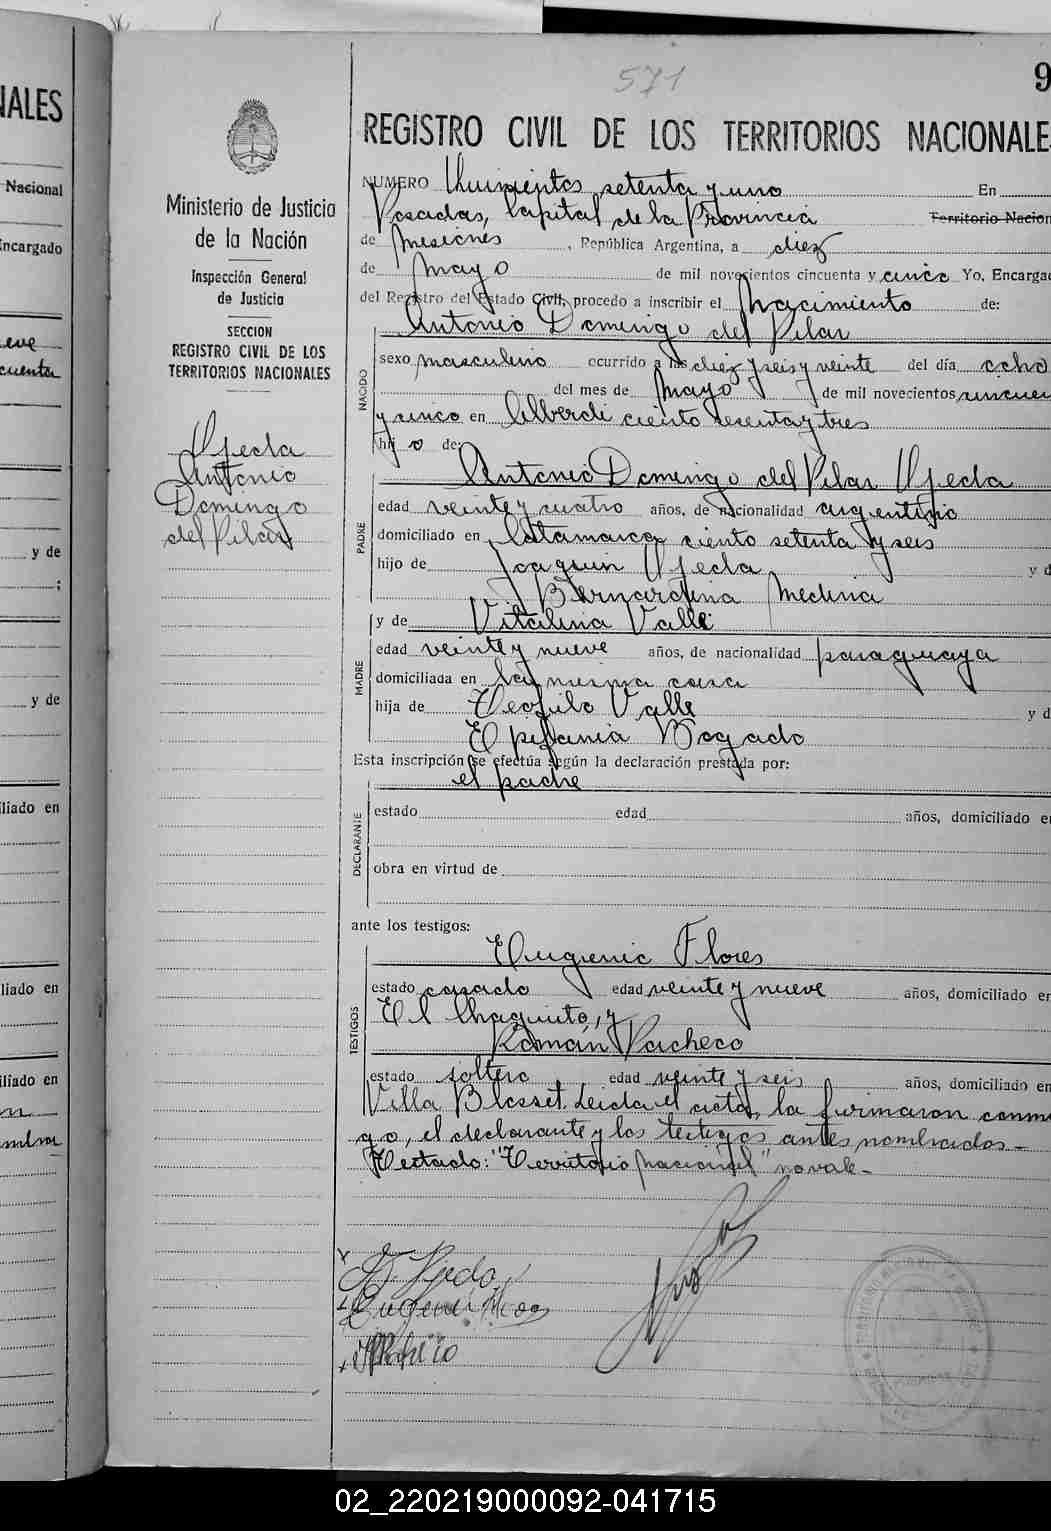 571
9
NALES
REGISTRO CIVIL DE LOS TERRITORIOS NACIONALE
Nacional
ncargado
eve
cuenta
y de
;
y de
iliado en
liado en
iliado en
Ministerio de Justicia
de la Nación
Inspección General
de Justicia
SECCION
REGISTRO CIVIL DE LOS
TERRITORIOS NACIONALES
Ojeda
Antonio
Domingo
del Pilar
NUMERO Quinientos setenta y uno En
Posadas, Capital de la Provincia Territorio Nacion
de Misiones, República Argentina, a diez
de mayo de mil novecientos cincuenta y cinco Yo, Encarga
del Registro del Estado Civil, procedo a inscribir el Nacimiento de:
Antonio Domingo del Pilar
NACIDO
sexo masculino ocurrido a las diez y seis y veinte del día ocho
del mes de Mayo de mil novecientos cincuen
y cinco en Alberdi ciento sesenta y tres
hij o de:
Antonio Domingo del Pilar Ojeda
PADRE
edad veinte y cuatro años, de nacionalidad argentino
domiciliado en Catamarca ciento setenta y seis
hijo de Joaquin Ojeda y d
Bernardina Medina
y de Vitalina Valle
MADRE
edad veinte y nueve años, de nacionalidad paraguaya
domiciliada en la misma casa
hija de Teofilo Valle y d
Epifania Bogado
Esta inscripción se efectúa según la declaración prestada por:
el padre
DECLARANTE
estado edad años, domiciliado en
obra en virtud de
ante los testigos:
Eugenio Flores
TESTIGOS
estado casado edad veinte y nueve años, domiciliado en
El Chaquito, y
Román Pacheco
estado soltero edad veinte y seis años, domiciliado en
Villa Blosset. Leida el acta, la firmaron conmi
go, el declarante y los testigos antes nombrados.-
Testado: "Territorio Nacional" no vale-
02_220219000092-041715